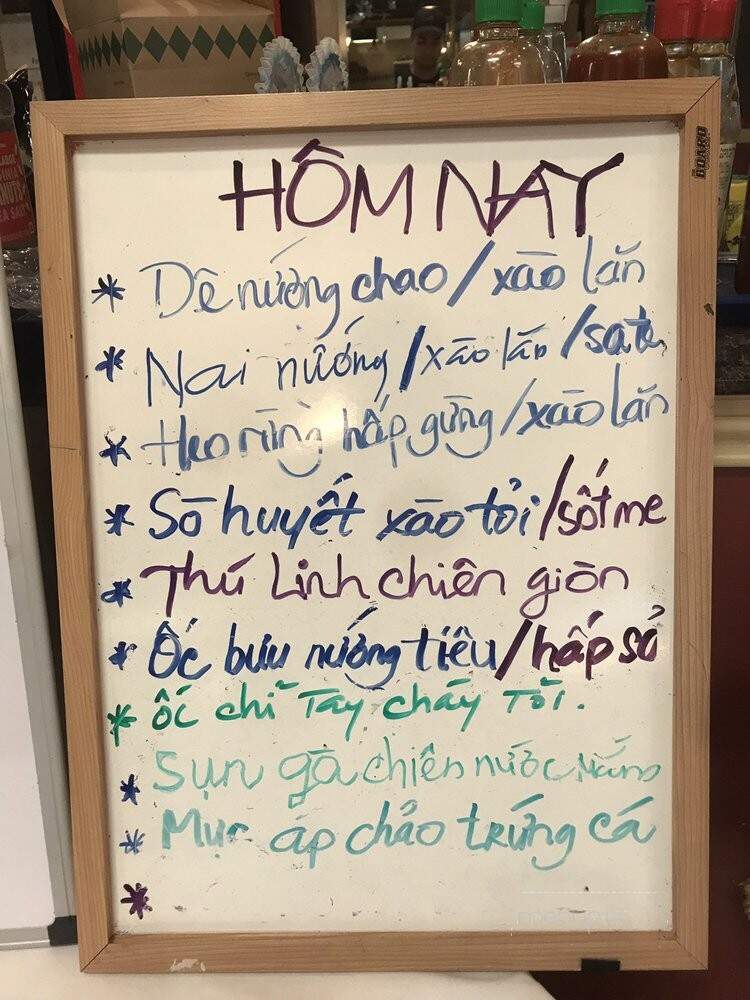 HÔM NAY
* Dê nướng chao / xào lăn
* Nai nướng / xào lăn / sate
* Heo rừng hấp gừng / xào lăn
* Sò huyết xào tỏi / sốt me
* Thú Linh chiên giòn
* Ốc bưu nướng tiêu / hấp sả
* Ốc chỉ Tay cháy Tỏi.
* Sụn gà chiên nước Mắm
* Mực áp chảo trứng cá
*
BOARD